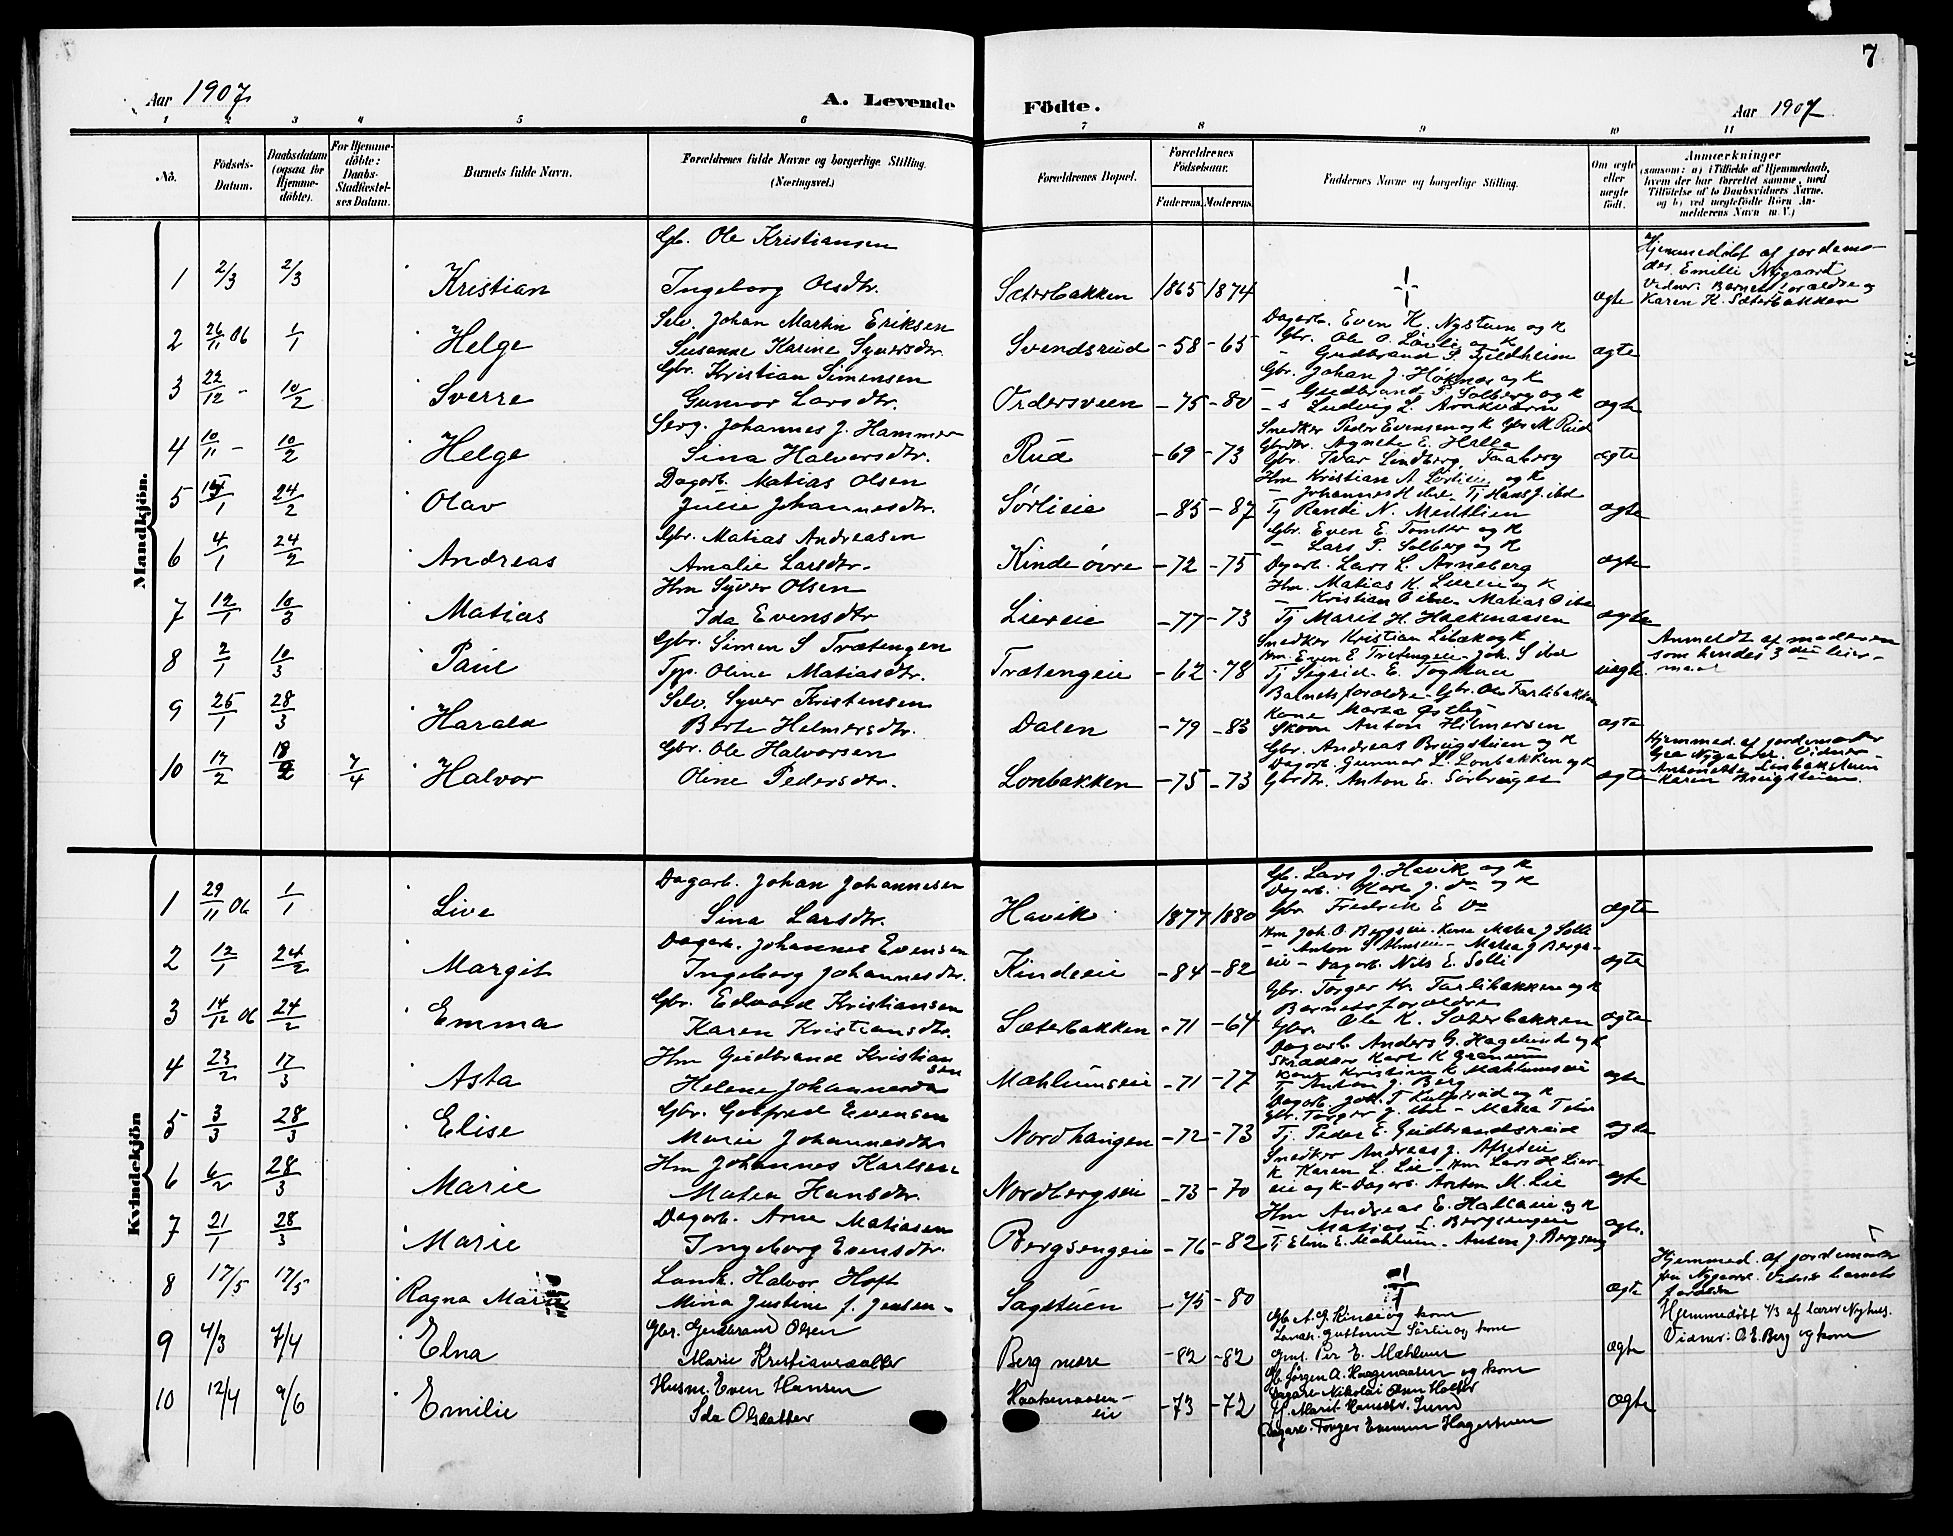 7
Aar 1907
A. Levende Födte.
Aar 1907
1 2 3 4 5 6 7 8 9 10 11
No. Födsels-Datum. Daabsdatum (ogsaa for Hjemmedöbte). For Hjemmedöbte: Daabs-Stadfæstelses Datum. Barnets fulde Navn. Forældrenes fulde Navne og borgerlige Stilling. (Næringsvei.) Forældrenes Bopæl. Forældrenes Födselsaar. Faderens. Moderens. Faddernes Navne og borgerlige Stilling. Om ægte eller uægte födt. Anmærkninger (saasom: a) i Tilfælde af Hjemmedaab, hvem der har forrettet samme, med Tilföielse af to Daabsvidners Navne. og b) ved uægtefödte Börn Anmelderens Navn m. V.)
Mandkjön.
Gb. Ole Kristiansen
1 2/3 2/3 Kristian Ingeborg Olsdtr. Sæterbakken 1865 1874 ægte
Hjemmedøbt af jordemo-
der Emilie Nygaard
Vidner: Barnets forældre og
Karen K. Sæterbakken
Selv. Johan Martin Eriksen
2 26/11 06 1/1 Helge Susanne Karine Syversdtr. Svendsrud -58 -65 ægte
Dagarb. Even K. Nystuen og k
Gbr. Ole O. Lavli og k
- Gudbrand S. Fjeldheim
Gbr. Kristian Simensen
3 22/12 - 10/2 Sverre Gunvor Larsdtr. Ordersveen -75 -80 ægte
Gbr. Johan J. Høknes og k
- Gudbrand P. Solberg og k
- s Ludvig L. Arnkværn
Serg. Johannes J. Hammer
4 10/11 - 10/2 Helge Sina Halversdtr. Rud -69 -73 ægte
Snedker Peder Evensen og k Gbr M. Rud
Gbrdtr. Agnete E. Halla
Gbr. Ivar Lindberg, Faaberg
Dagarb. Matias Olsen
5 1/1 24/2 Olav Julie Johannesdtr. Sørlieie -85 -87 ægte
Hm Kristian A Sørlieie og k
- Johannes H ibd. Tj Hans J. ibd
Tj Randi N. Medtlien
Gbr. Matias Andreasen
6 4/1 24/2 Andreas Amalie Larsdtr. Kinde øvre -72 -75 ægte
Gbr. Even E. Tomter og k
- Lars P. Solberg og k
Dagarb. Lars L. Arneberg
Hm Syver Olsen
7 12/1 10/3 Matias Ida Evensdtr Liereie -77 -73 ægte
Hm. Matias K. Liereie og k
- Kristian O ibd - Matias O ibd
Tj Marit H. Haakenaasen
Gbr. Simen S Trætengen
8 2/1 10/3 Paul Tjp. Oline Matiasdtr. Trætengeie -62 -78 uægte
Snedker Kristian Libæk og k
Hm. Even E. Trætengeie - Joh. S ibd
Tj Sigrid E.
Anmeldt af moderen
som hendes 3die leier-
maal
Selv. Syver Kristensen
9 25/1 28/3 Harald Berte Helmersdtr. Dalen -79 -83 ægte
Barnets forældre - Gbr. Ole Farlibakken
kone Marta Østlig
Skom Anton Hilmersen
Gbr. Ole Halvorsen
10 17/2 18/2 7/4 Halvor Oline Pedersdtr. Lonbakken -75 -73 ægte
Gbr. Andreas Brugstuen og k
Dagarb. Gunnar L. Lonbakken og k
Gbrdtr. Anton E. Sørbruget
Hjemmed. af jordemoder
Gea Nygaard. Vidner
Antonette Lonbakstuen
Karen Brugstuen.
Kvindekjön
Dagarb. Johan Johannesen
1 29/11 06 1/1 Live Sina Larsdtr. Havik 1877 1880 ægte
Gb. Lars J. Havik og k
Dagarb. Karl J. do og k
Gbr Fredrik E do
Dagarb. Johannes Evensen
2 12/1 24/2 Margit Ingeborg Johannesdtr. Kindeeie -84 -82 ægte
Hm Joh. O Bergseie. Kone Matea J Solli
- Anton S Almseie - Matea J Bergs-
eie - Dagarb. Nils E. Solli
Gbr. Edvard Kristiansen
3 14/12 06 24/2 Emma Karen Kristiansdtr. Sæterbakken -71 -64 ægte
Gbr. Torger Kr. Farlibakken og k
Barnets forældre
Gbr. Ole K. Sæterbakken
Hm Gudbrand Kristiansen
4 23/2 17/3 Asta Helene Johannesda Mæhlumseie -71 -77 ægte
Dagarb Anders G. Hagelund og k
Skrædder Karl K Granum
Kone Kristine K Mæhlumseie
Tj Anton J. Berg
Gbr. Gotfred Evensen
5 3/3 28/3 Elise Marie Johannesdtr Nordhaugen -72 -73 ægte
Dagarb. Joh. T Kulperud og k
Gbr. Torger J. ibd - Matea T ibd
Tj. Peder E. Gudbrandsrud
Hm Johannes Karlsen
6 6/2 28/3 Marie Matea Hansdtr. Nordbergseie -73 -70 ægte
Snedker Andreas J. Afseteie
k Karen L. Lie - Hm Lars H Lier-
eie og k - Dagarb. Anton M. Lie
Dagarb. Arne Matiasen
7 21/1 28/3 Marie Ingeborg Evensdtr. Bergsengeie -76 -82 ægte.
Hm Andreas E. Hallaeie og k
- Matias L. Bergsengeie
Tj Eline E. Mæhlum. Anton J. Bergseng
Landh. Halvor Hoft
8 17/5 17/5 Ragna Marie Mina Justine f. Jensen - Sagstuen -75 -80 ægte
Hjemmed. af jordemoder
fru Nygaard. Vidner barnets
forældre
Gbr. Gudbrand Olsen
9 4/3 7/4 Elna Marie Kristiansdatter Berg nære -82 -82 ægte
Gb A. G. Kinde og kone
Landh. Guttorm Sørlie og kone
Gms. Per E. Mæhlum
Hjemmedøbt 4/3 af lærer Nyhus.
Vidner: O. E. Berg og kone
Husm. Even Hansen
10 12/4 9/6 Emilie Ida Olsdatter Haakenaasen-
eie -73 -72 ægte
Gb Jørgen A. Haagenaasen og kone
Dagarb Nikolai Olsen Holter
Pj. Marit Hansdtr. Lund
Dagarb. Torger Evensen Hagestuen